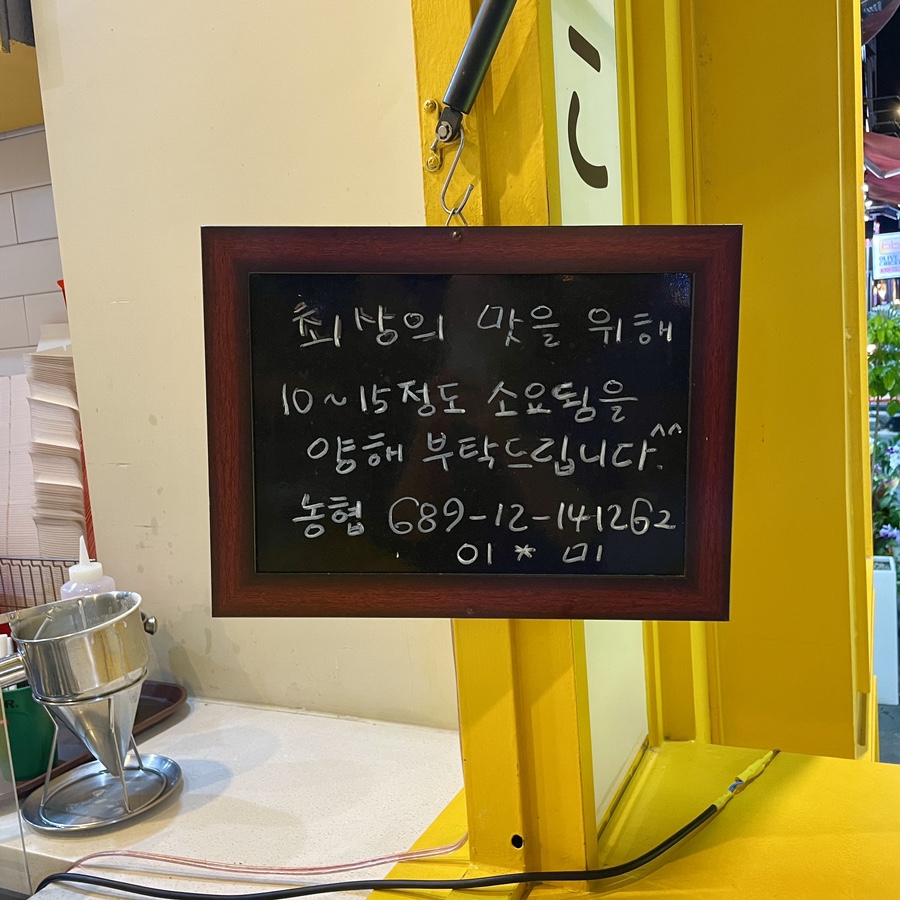 최상의 맛을 위해
10~15정도 소요됨을
양해 부탁드립니다.^^
농협 689-12-141262
이*미